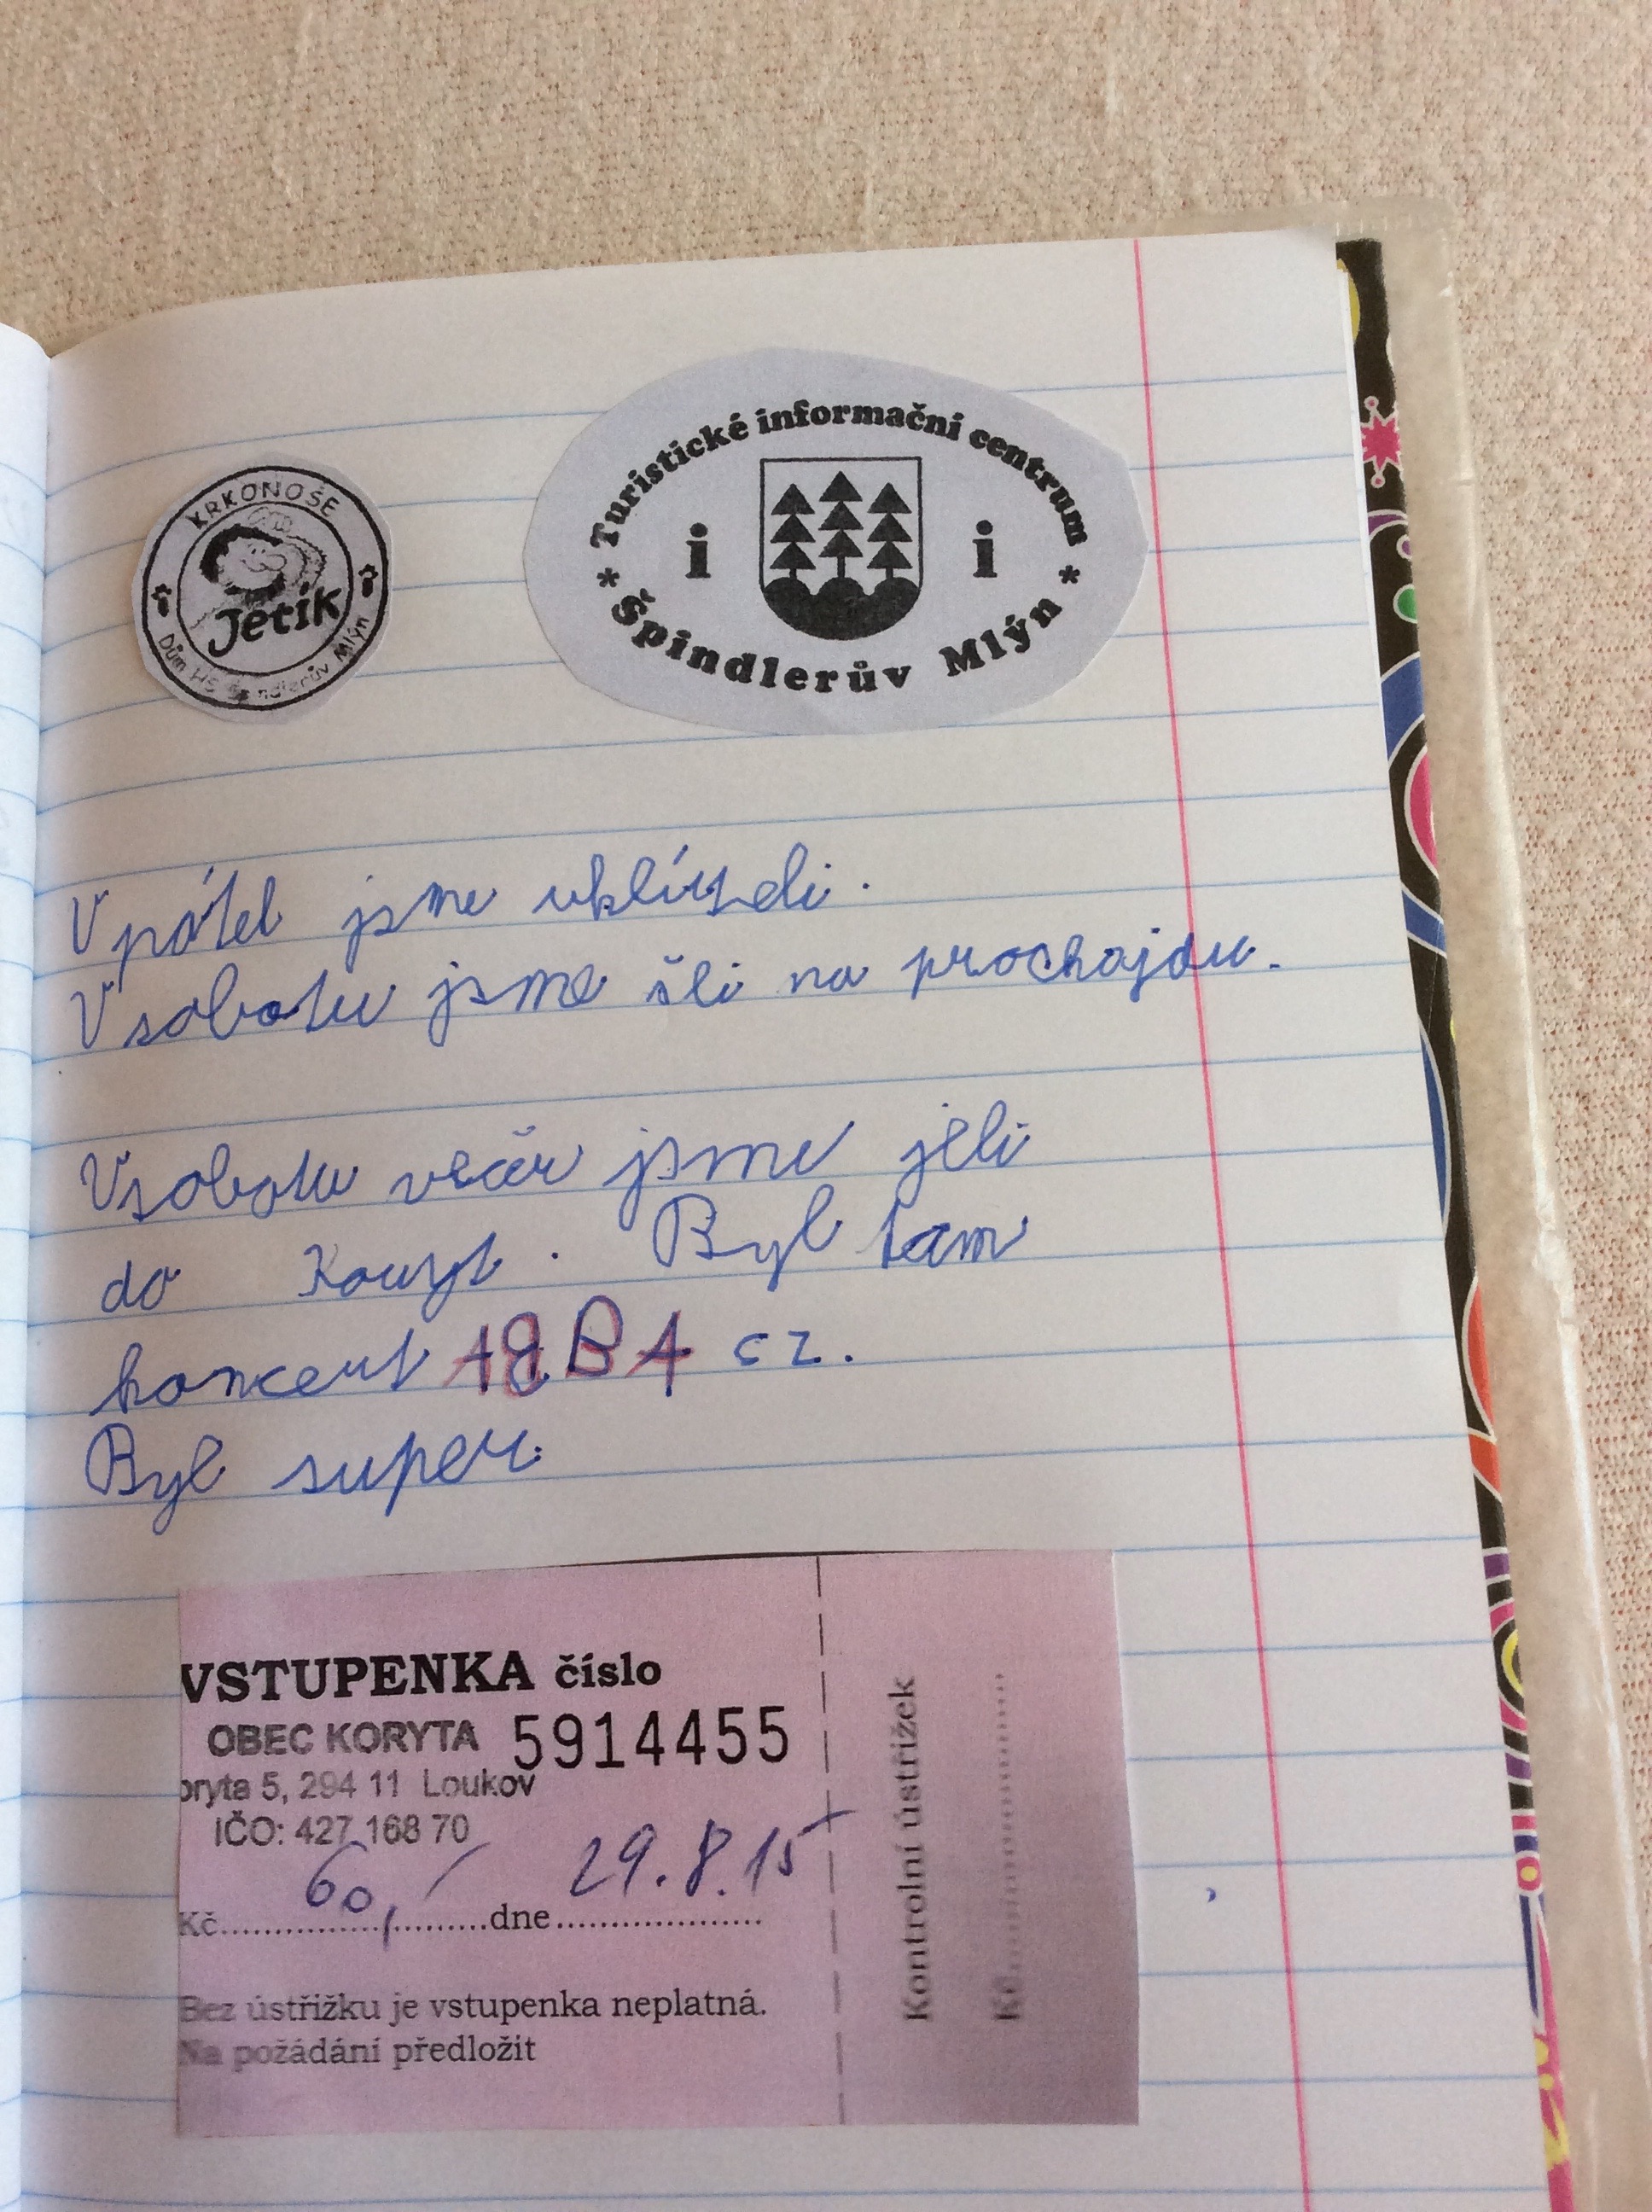 KRKONOŠE
Jetík
Dům HS Špindlerův Mlýn
Turistické informační centrum
i i
* Špindlerův Mlýn *
V pátel jsme uklízeli.
V sobotu jsme šli na prochajdu.
V sobotu večer jsme jeli
do Koryt. Byl tam
koncert ABBA cz.
Byl super.
VSTUPENKA číslo
OBEC KORYTA 5914455
oryta 5, 294 11 Loukov
IČO: 427 168 70
Kč 60,- dne 29.8.15
Bez ústřižku je vstupenka neplatná.
Na požádání předložit
Kontrolní ústřižek
Kč